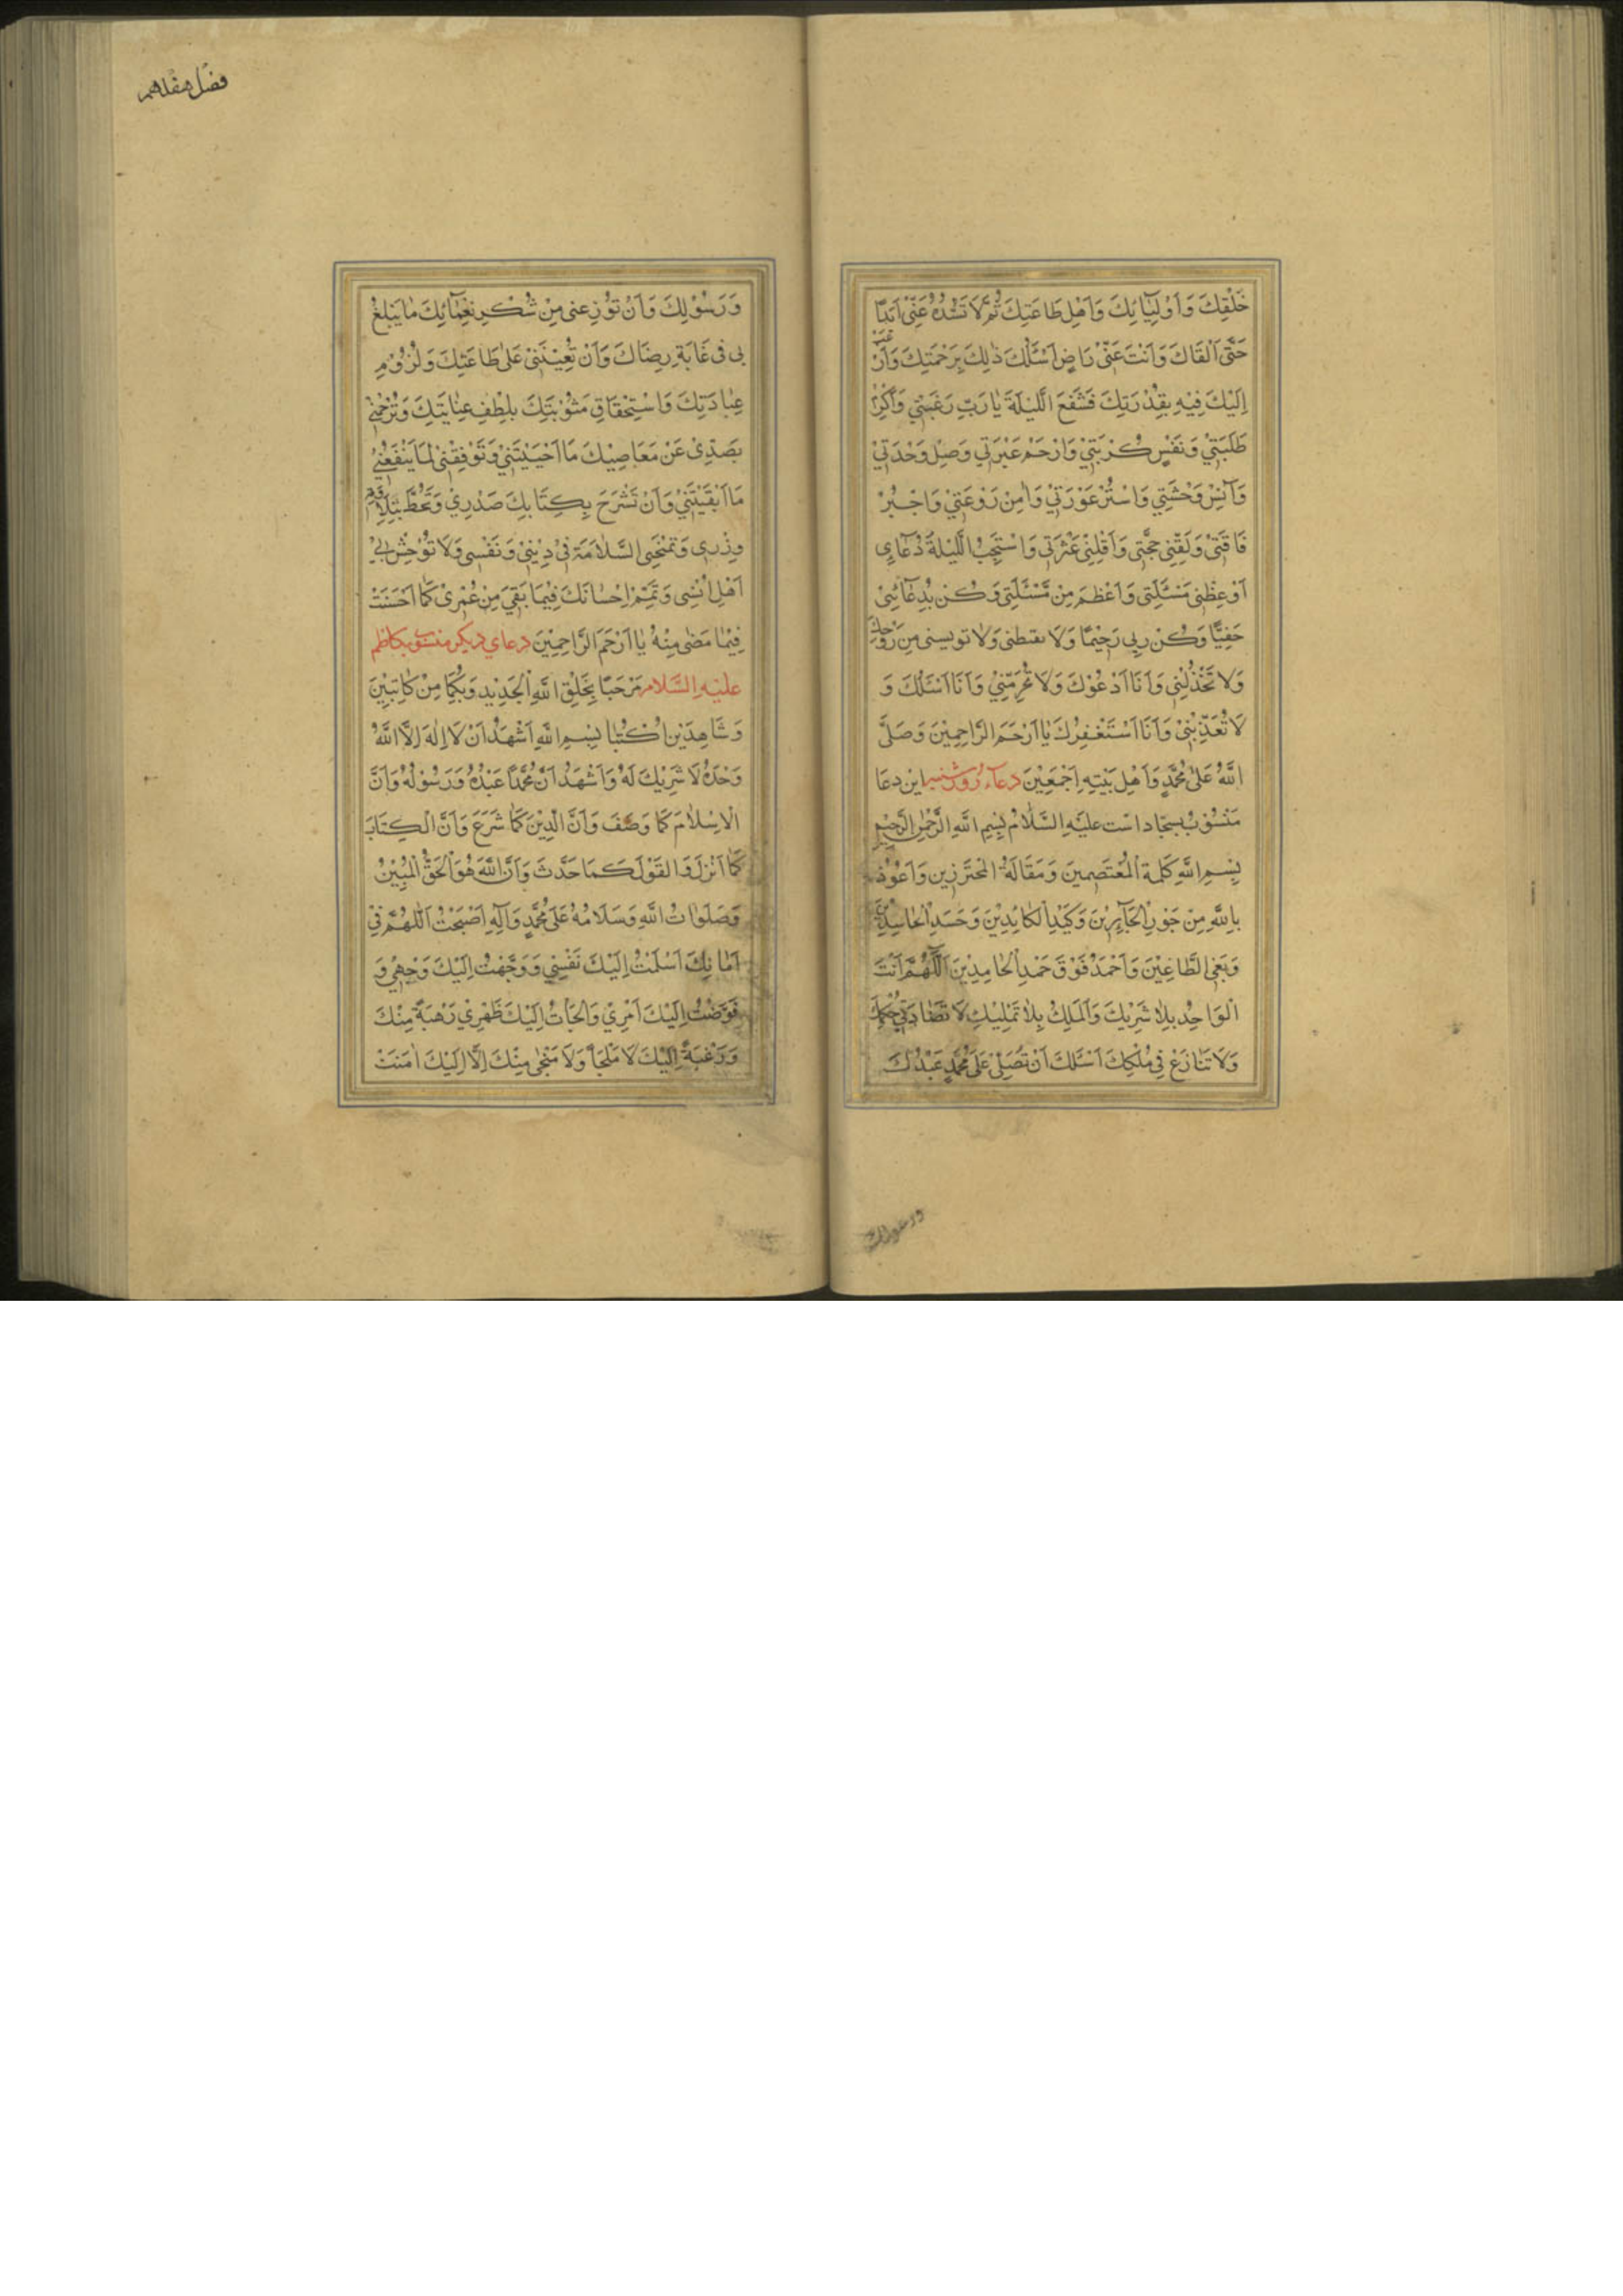 خَلْقِكَ وَاَوْلِيَائِكَ وَاَهْلِ طَاعَتِكَ ثُمَّ لَا تَشُدُّهُ عَنِّي اَبَدًا
حَتَّى اَلْقَاكَ وَاَنْتَ عَنِّي رَاضٍ اَسْئَلُكَ ذٰلِكَ بِرَحْمَتِكَ وَاَرْغَبُ
اِلَيْكَ فِيْهِ بِقُدْرَتِكَ فَشَفِّعِ اللَّيْلَةَ يَا رَبِّ رَغْبَتِي وَاَكْرِمْ
طَلِبَتِي وَنَفِّسْ كُرْبَتِي وَارْحَمْ عَبْرَتِي وَصِلْ وَحْدَتِي
وَآنِسْ وَحْشَتِي وَاسْتُرْ عَوْرَتِي وَاٰمِنْ رَوْعَتِي وَاجْبُرْ
فَاقَتِي وَلَقِّنِي حُجَّتِي وَاَقِلْنِي عَثْرَتِي وَاسْتَجِبِ اللَّيْلَةَ دُعَآئِي
مَسْئَلَتِي وَاَعْظَمَ مِنْ مَسْئَلَتِي وَكُنْ بِدُعَآئِي
حَفِيًّا وَكُنْ بِي رَحِيْمًا وَلَا تقنطنى وَلَا تويسنى مِنْ رَوْحِكَ
وَلَا تَخْذُلْنِي وَاَنَا اَدْعُوْكَ وَلَا تَحْرِمْنِي وَاَنَا اَسْئَلُكَ وَ
لَا تُعَذِّبْنِي وَاَنَا اَسْتَغْفِرُكَ يَا اَرْحَمَ الرَّاحِمِيْنَ وَصَلَّى
اللّٰهُ عَلٰى مُحَمَّدٍ وَاَهْلِ بَيْتِهِ اَجْمَعِيْنَ دعاء روز شنبه این دعا
مَنْسُوْبْ بسجّاد است عليْهِ السَّلَامْ بِسْمِ اللّٰهِ الرَّحْمٰنِ الرَّحِيْمِ
بِسْمِ اللّٰهِ كَلِمَةِ الْمُعْتَصِمِينَ وَمَقَالَةِ الْمُتَحَرِّزِينَ وَاَعُوْذُ
بِاللّٰهِ مِنْ جَوْرِ الْجَآئِرِيْنَ وَكَيْدِ الْكَائِدِيْنَ وَحَسَدِ الْحَاسِدِيْنَ
وَبَغْيِ الطَّاغِيْنَ وَاَحْمَدُهُ فَوْقَ حَمْدِ الْحَامِدِيْنَ اَللّٰهُمَّ اَنْتَ
الْوَاحِدُ بِلَا شَرِيْكَ وَالْمَلِكُ بِلَا تَمْلِيْكِ لَا تُضَادُّ فِي حُكْمِكَ
وَلَا تَنَازَعُ فِي مُلْكِكَ اَسْئَلُكَ اَنْ تُصَلِّيَ عَلٰى مُحَمَّدٍ عَبْدِكَ
ورسولك
فصل هفدهم
وَرَسُوْلِكَ وَاَنْ تُوْزِعنى مِنْ شُكْرِ نَعْمَآئِكَ مَا يَبْلُغُ
بى فى غَايَةِ رِضَاكَ وَاَنْ تُعِيْنَنِي عَلٰى طَاعَتِكَ وَلُزُوْمِ
عِبَادَتِكَ وَاسْتِحْقَاقِ مَثُوْبَتِكَ بِلُطْفِ عِنَايَتِكَ وَتَرْحَمَنِي
بِصَدِّي عَنْ مَعَاصِيْكَ مَا اَحْيَيْتَنِي وَتَوْفِقْنِي لِمَا يَنْفَعُنِي
مَا اَبْقَيْتَنِي وَاَنْ تَشْرَحَ بِكِتَابِكَ صَدْرِي وَتَحُطَّ بِتِلَاوَتِهِ
وِزْرِي وَتَمْنَحَنِي السَّلَامَةَ فِي دِيْنِي وَنَفْسِي وَلَا تُوْحِشْ بِي
اَهْلَ اُنْسِي وَتُتَمِّمْ اِحْسَانَكَ فِيْمَا بَقِيَ مِنْ عُمْرِي كَمَا اَحْسَنْتَ
فِيْمَا مَضٰى مِنْهُ يَا اَرْحَمَ الرَّاحِمِيْنَ دعاى ديكر منسوب بكاظم
عليْهِ السَّلَام مَرْحَبًا بِخَلْقِ اللّٰهِ الْجَدِيْدِ وَبِكُمَا مِنْ كَاتِبَيْنِ
وَشَاهِدَيْنِ اُكْتُبَا بِسْمِ اللّٰهِ اَشْهَدُ اَنْ لَا اِلٰهَ اِلَّا اللّٰهُ
وَحْدَهُ لَا شَرِيْكَ لَهُ وَاَشْهَدُ اَنَّ مُحَمَّدًا عَبْدُهُ وَرَسُوْلُهُ وَاَنَّ
الْاِسْلَامَ كَمَا وَصَفَ وَاَنَّ الدِّيْنَ كَمَا شَرَعَ وَاَنَّ الْكِتَابَ
كَمَا اَنْزَلَ وَالْقَوْلَ كَمَا حَدَّثَ وَاَنَّ اللّٰهَ هُوَ الْحَقُّ الْمُبِيْنُ
وَصَلَوَاتُ اللّٰهِ وَسَلَامُهُ عَلٰى مُحَمَّدٍ وَآلِهِ اَصْبَحْتُ اَللّٰهُمَّ فِي
اَمَانِكَ اَسْلَمْتُ اِلَيْكَ نَفْسِي وَوَجَّهْتُ اِلَيْكَ وَجْهِي وَ
فَوَّضْتُ اِلَيْكَ اَمْرِي وَاَلْجَاْتُ اِلَيْكَ ظَهْرِي رَهْبَةً مِنْكَ
وَرَغْبَةً اِلَيْكَ لَا مَلْجَاَ وَلَا مَنْجٰى مِنْكَ اِلَّا اِلَيْكَ اٰمَنْتُ